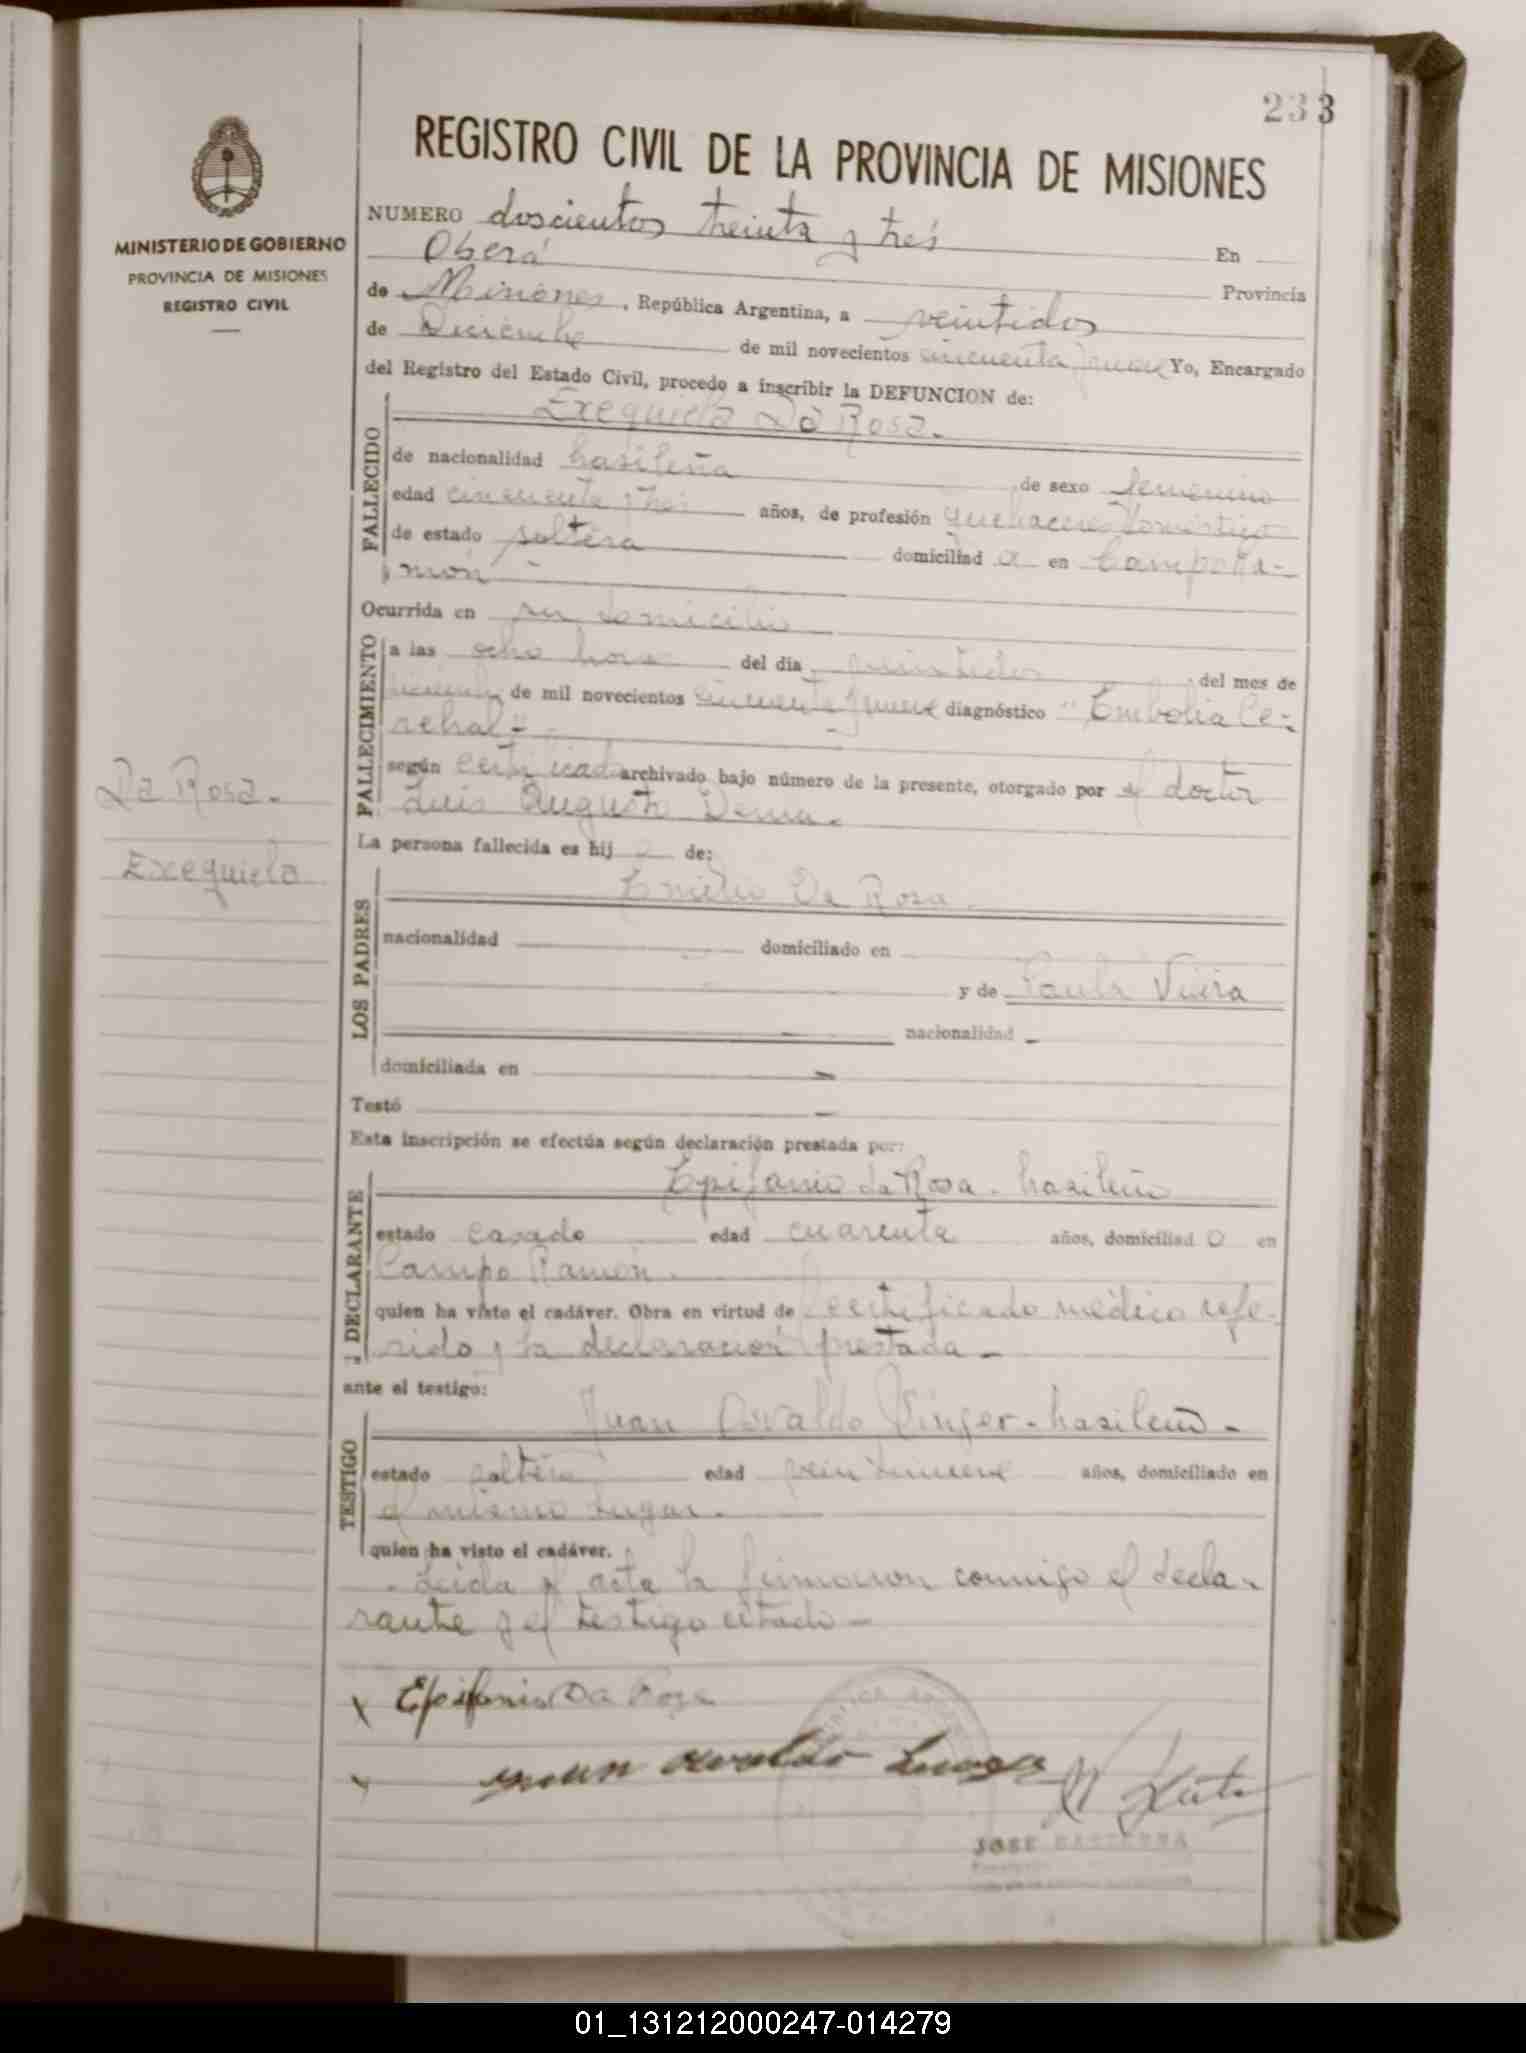 233
REGISTRO CIVIL DE LA PROVINCIA DE MISIONES
MINISTERIO DE GOBIERNO
PROVINCIA DE MISIONES
REGISTRO CIVIL
NUMERO doscientos treinta y tres En
Oberá Provincia
de Misiones, República Argentina, a veintidos
de Diciembre de mil novecientos cincuenta y nueve Yo, Encargado
del Registro del Estado Civil, procedo a inscribir la DEFUNCION de:
Exequiela Da Rosa.
FALLECIDO
de nacionalidad brasileña de sexo femenino
edad cincuenta y tres años, de profesión quehaceres domésticos
de estado soltera domiciliad a en Campo Ra-
món
Ocurrida en su domicilio
FALLECIMIENTO
a las ocho horas del día veintidos del mes de
diciembre de mil novecientos cincuenta y nueve diagnóstico "Embolia Ce-
rebral"
según certificado archivado bajo número de la presente, otorgado por el doctor
Luis Augusto
Da Rosa.
Exequiela
La persona fallecida es hij a de:
LOS PADRES
Emilio Da Rosa.
nacionalidad domiciliado en
y de Paula Vieira
nacionalidad -
domiciliada en
Testó
Esta inscripción se efectúa según declaración prestada por:
DECLARANTE
Epifanio da Rosa - brasileño
estado casado edad cuarenta años, domiciliad o en
Campo Ramón.
quien ha visto el cadáver. Obra en virtud de certificado médico refe-
rido y la declaración prestada -
ante el testigo:
TESTIGO
Juan Osvaldo - brasileño -
estado soltero edad veintinueve años, domiciliado en
el mismo lugar.
quien ha visto el cadáver.
Leida el acta la firmaron conmigo el decla-
rante y el testigo citado -
Epifanio Da Rosa
Juan Osvaldo
JOSE
01_131212000247-014279